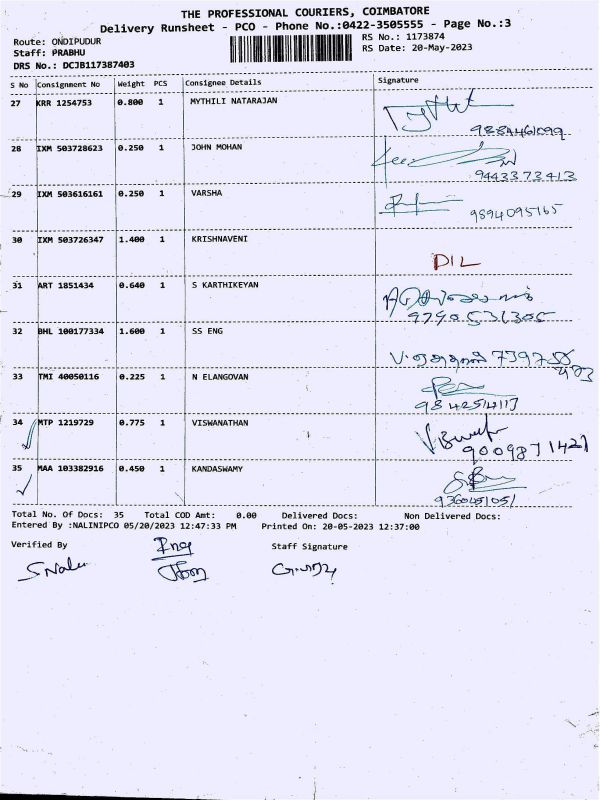 THE PROFESSIONAL COURIERS, COIMBATORE
Delivery Runsheet - PCO - Phone No.:0422-3505555 - Page No.:3
Route: ONDIPUDUR RS No.: 1173874
Staff: PRABHU RS Date: 20-May-2023
DRS No.: DCJB117387403
S No Consignment No Weight PCS Consignee Details Signature
27 KRR 1254753 0.800 1 MYTHILI NATARAJAN
9884461099
28 IXM 503728623 0.250 1 JOHN MOHAN
9443373413
29 IXM 503616161 0.250 1 VARSHA
9894095165
30 IXM 503726347 1.400 1 KRISHNAVENI
DIL
31 ART 1851434 0.640 1 S KARTHIKEYAN
32 BHL 100177334 1.600 1 SS ENG
33 TMI 40050116 0.225 1 N ELANGOVAN
34 MTP 1219729 0.775 1 VISWANATHAN
35 MAA 103382916 0.450 1 KANDASWAMY
Total No. Of Docs: 35 Total COD Amt: 0.00 Delivered Docs: Non Delivered Docs:
Entered By :NALINIPCO 05/20/2023 12:47:33 PM Printed On: 20-05-2023 12:37:00
Verified By Staff Signature